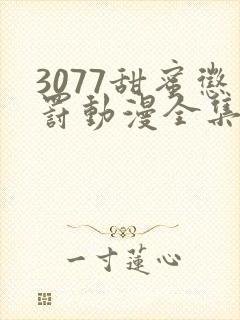 3077甜蜜惩
罚动漫全集
一寸蓮心